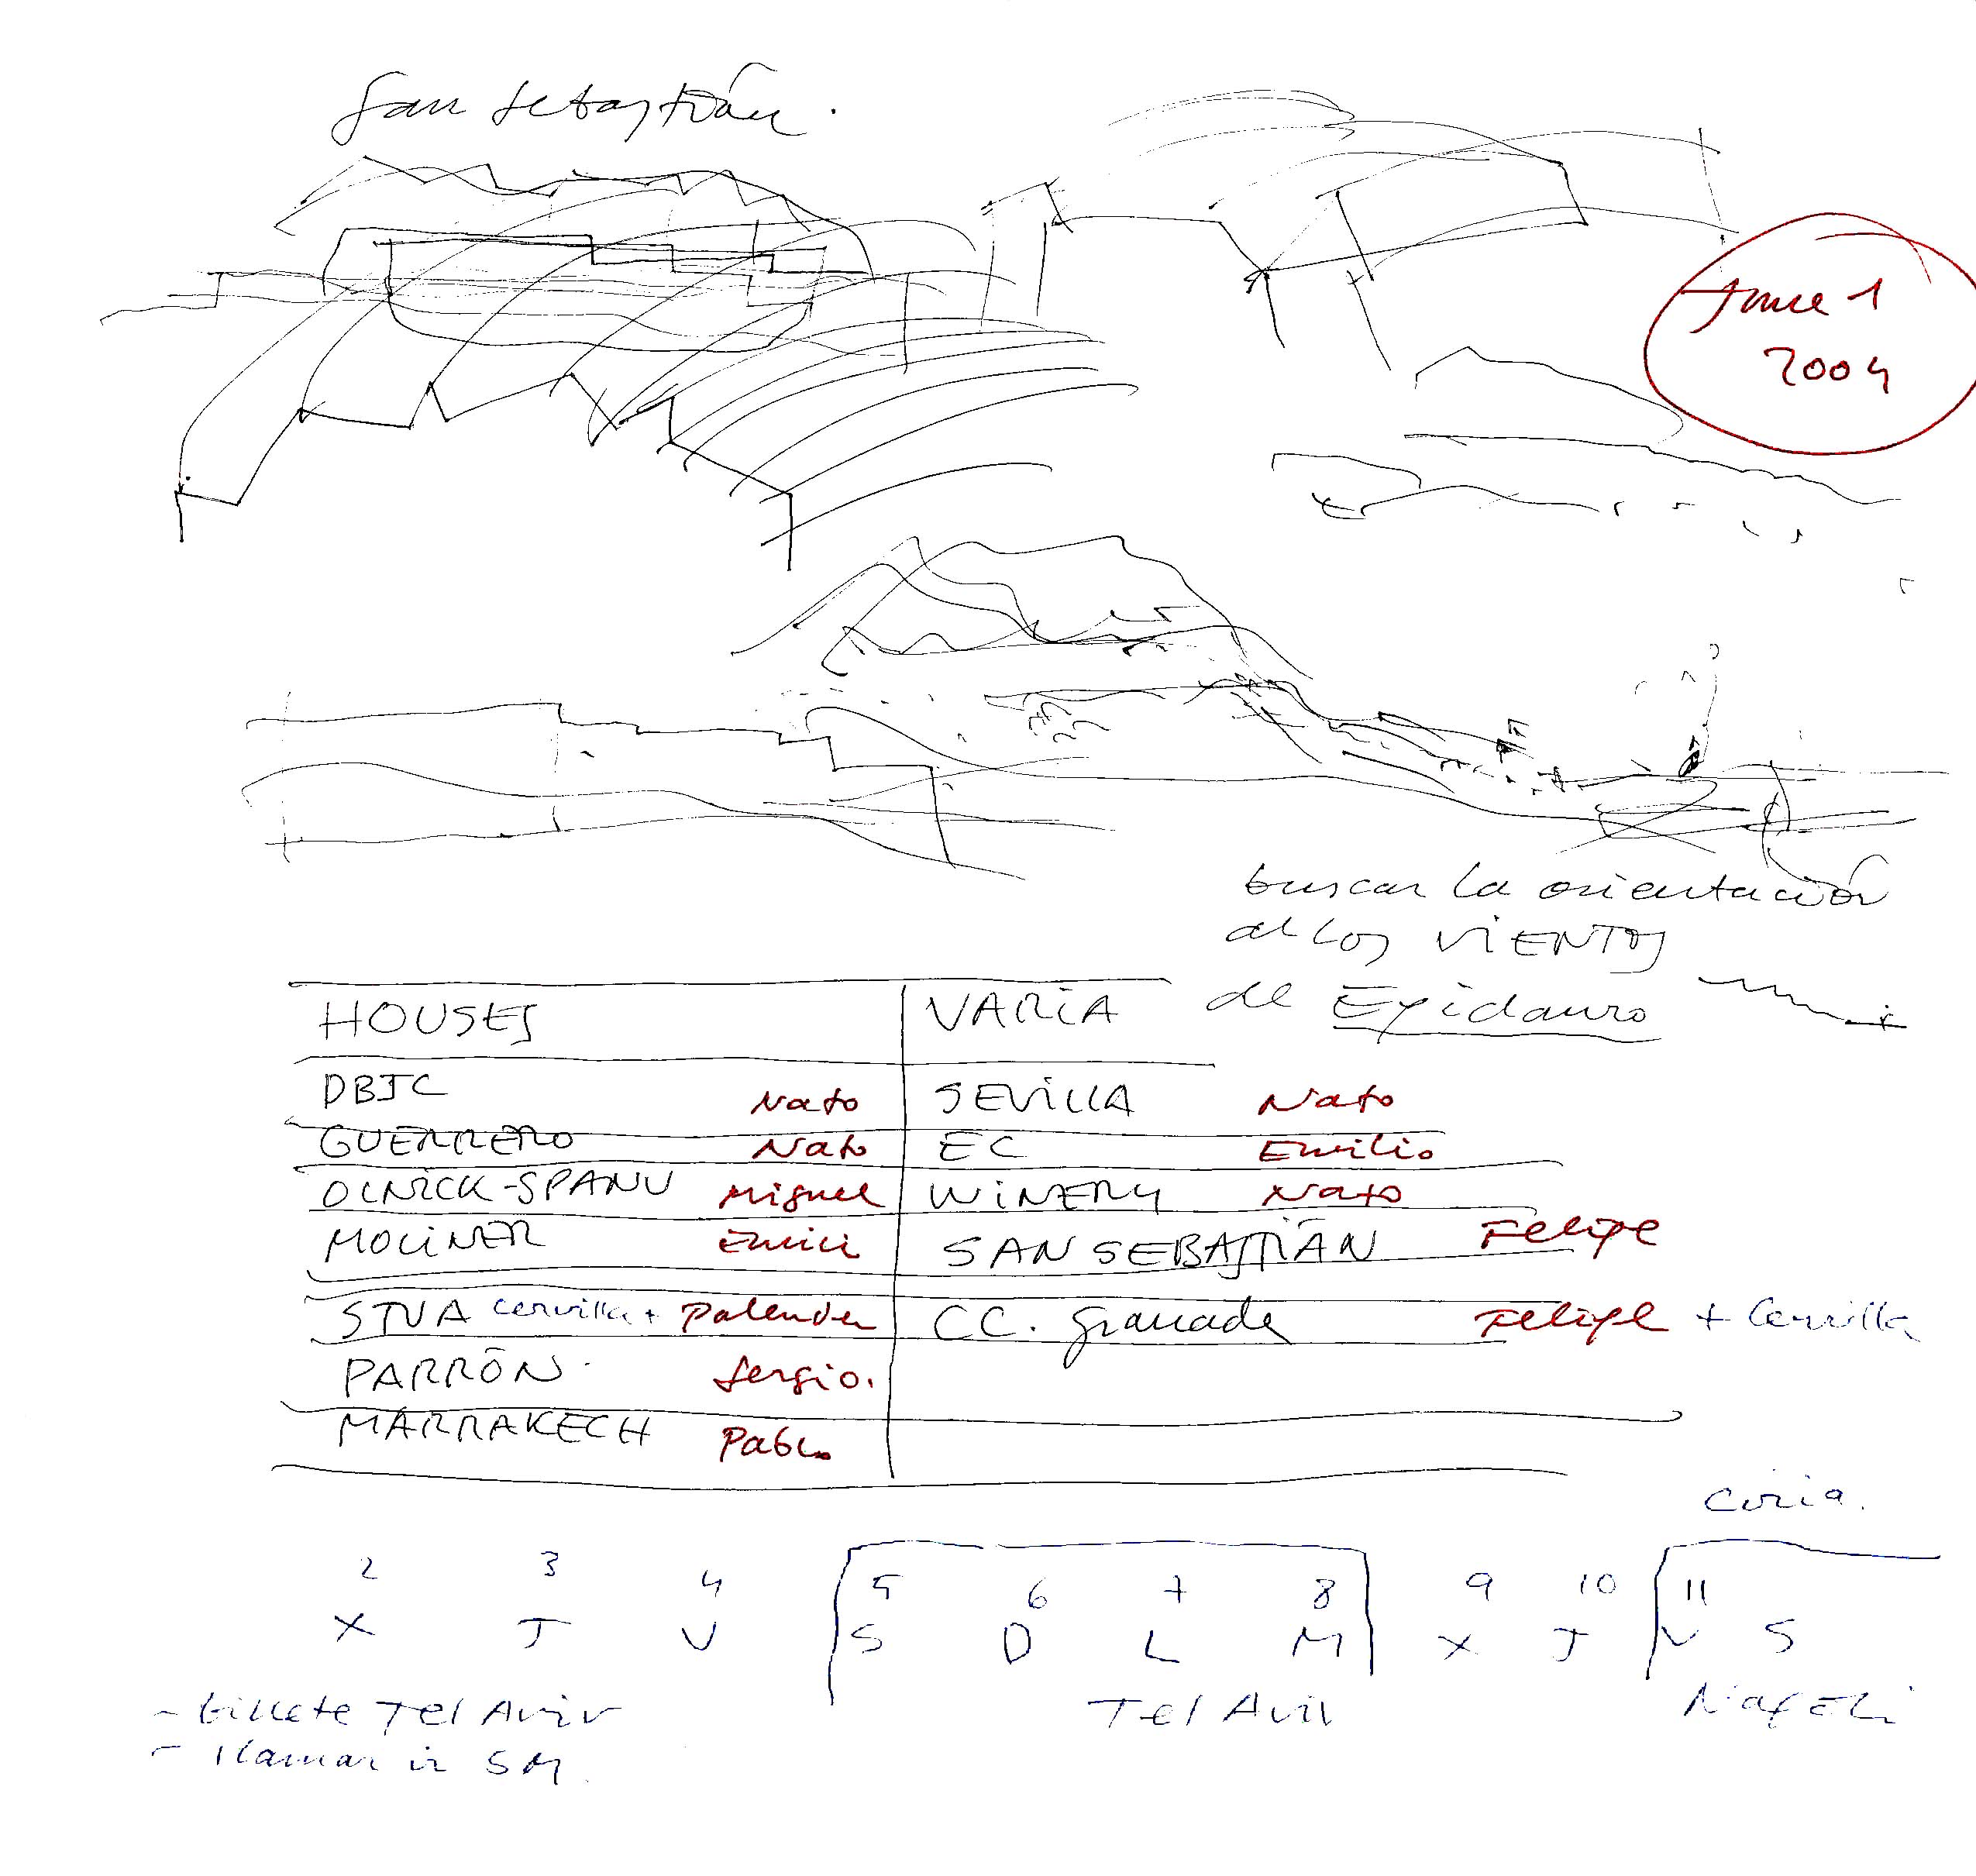 San Sebastián.
June 1
2004
buscar la orientación
de los VIENTOS
de Epidauro
HOUSES VARIA
DBJC Nato SEVILLA Nato
GUERRERO Nato EC Emilio
OLNICK-SPANU Miguel WINERY Nato
MOLINER Emili SAN SEBASTIÁN Felipe
STUA Cervilla + CC. Granada Felipe + Cervilla
PARRÓN. Sergio.
MARRAKECH Pablo
2 3 4 5 6 7 8 9 10 11
X J V S D L M X J V S
- billete Tel Aviv Tel Aviv Napoli
- llamar SM.